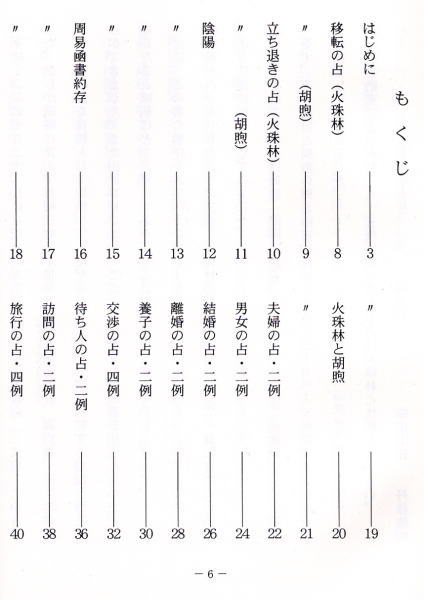 もくじ
はじめに 3
移転の占（火珠林） 8
〃（胡煦） 9
立ち退きの占（火珠林） 10
〃（胡煦） 11
陰陽 12
〃 13
〃 14
〃 15
周易函書約存 16
〃 17
〃 18
〃 19
火珠林と胡煦 20
〃 21
夫婦の占・二例 22
男女の占・二例 24
結婚の占・二例 26
離婚の占・二例 28
養子の占・二例 30
交渉の占・四例 32
待ち人の占・二例 36
訪問の占・二例 38
旅行の占・四例 40
— 6 —